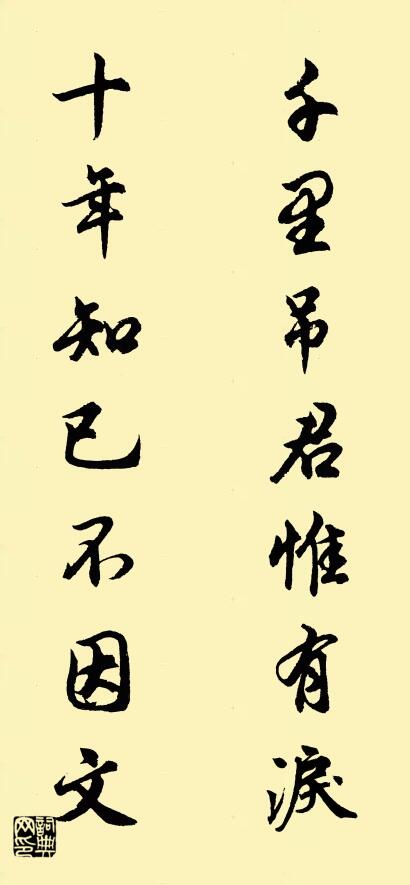 千里吊君惟有淚
十年知己不因文
詞典網印